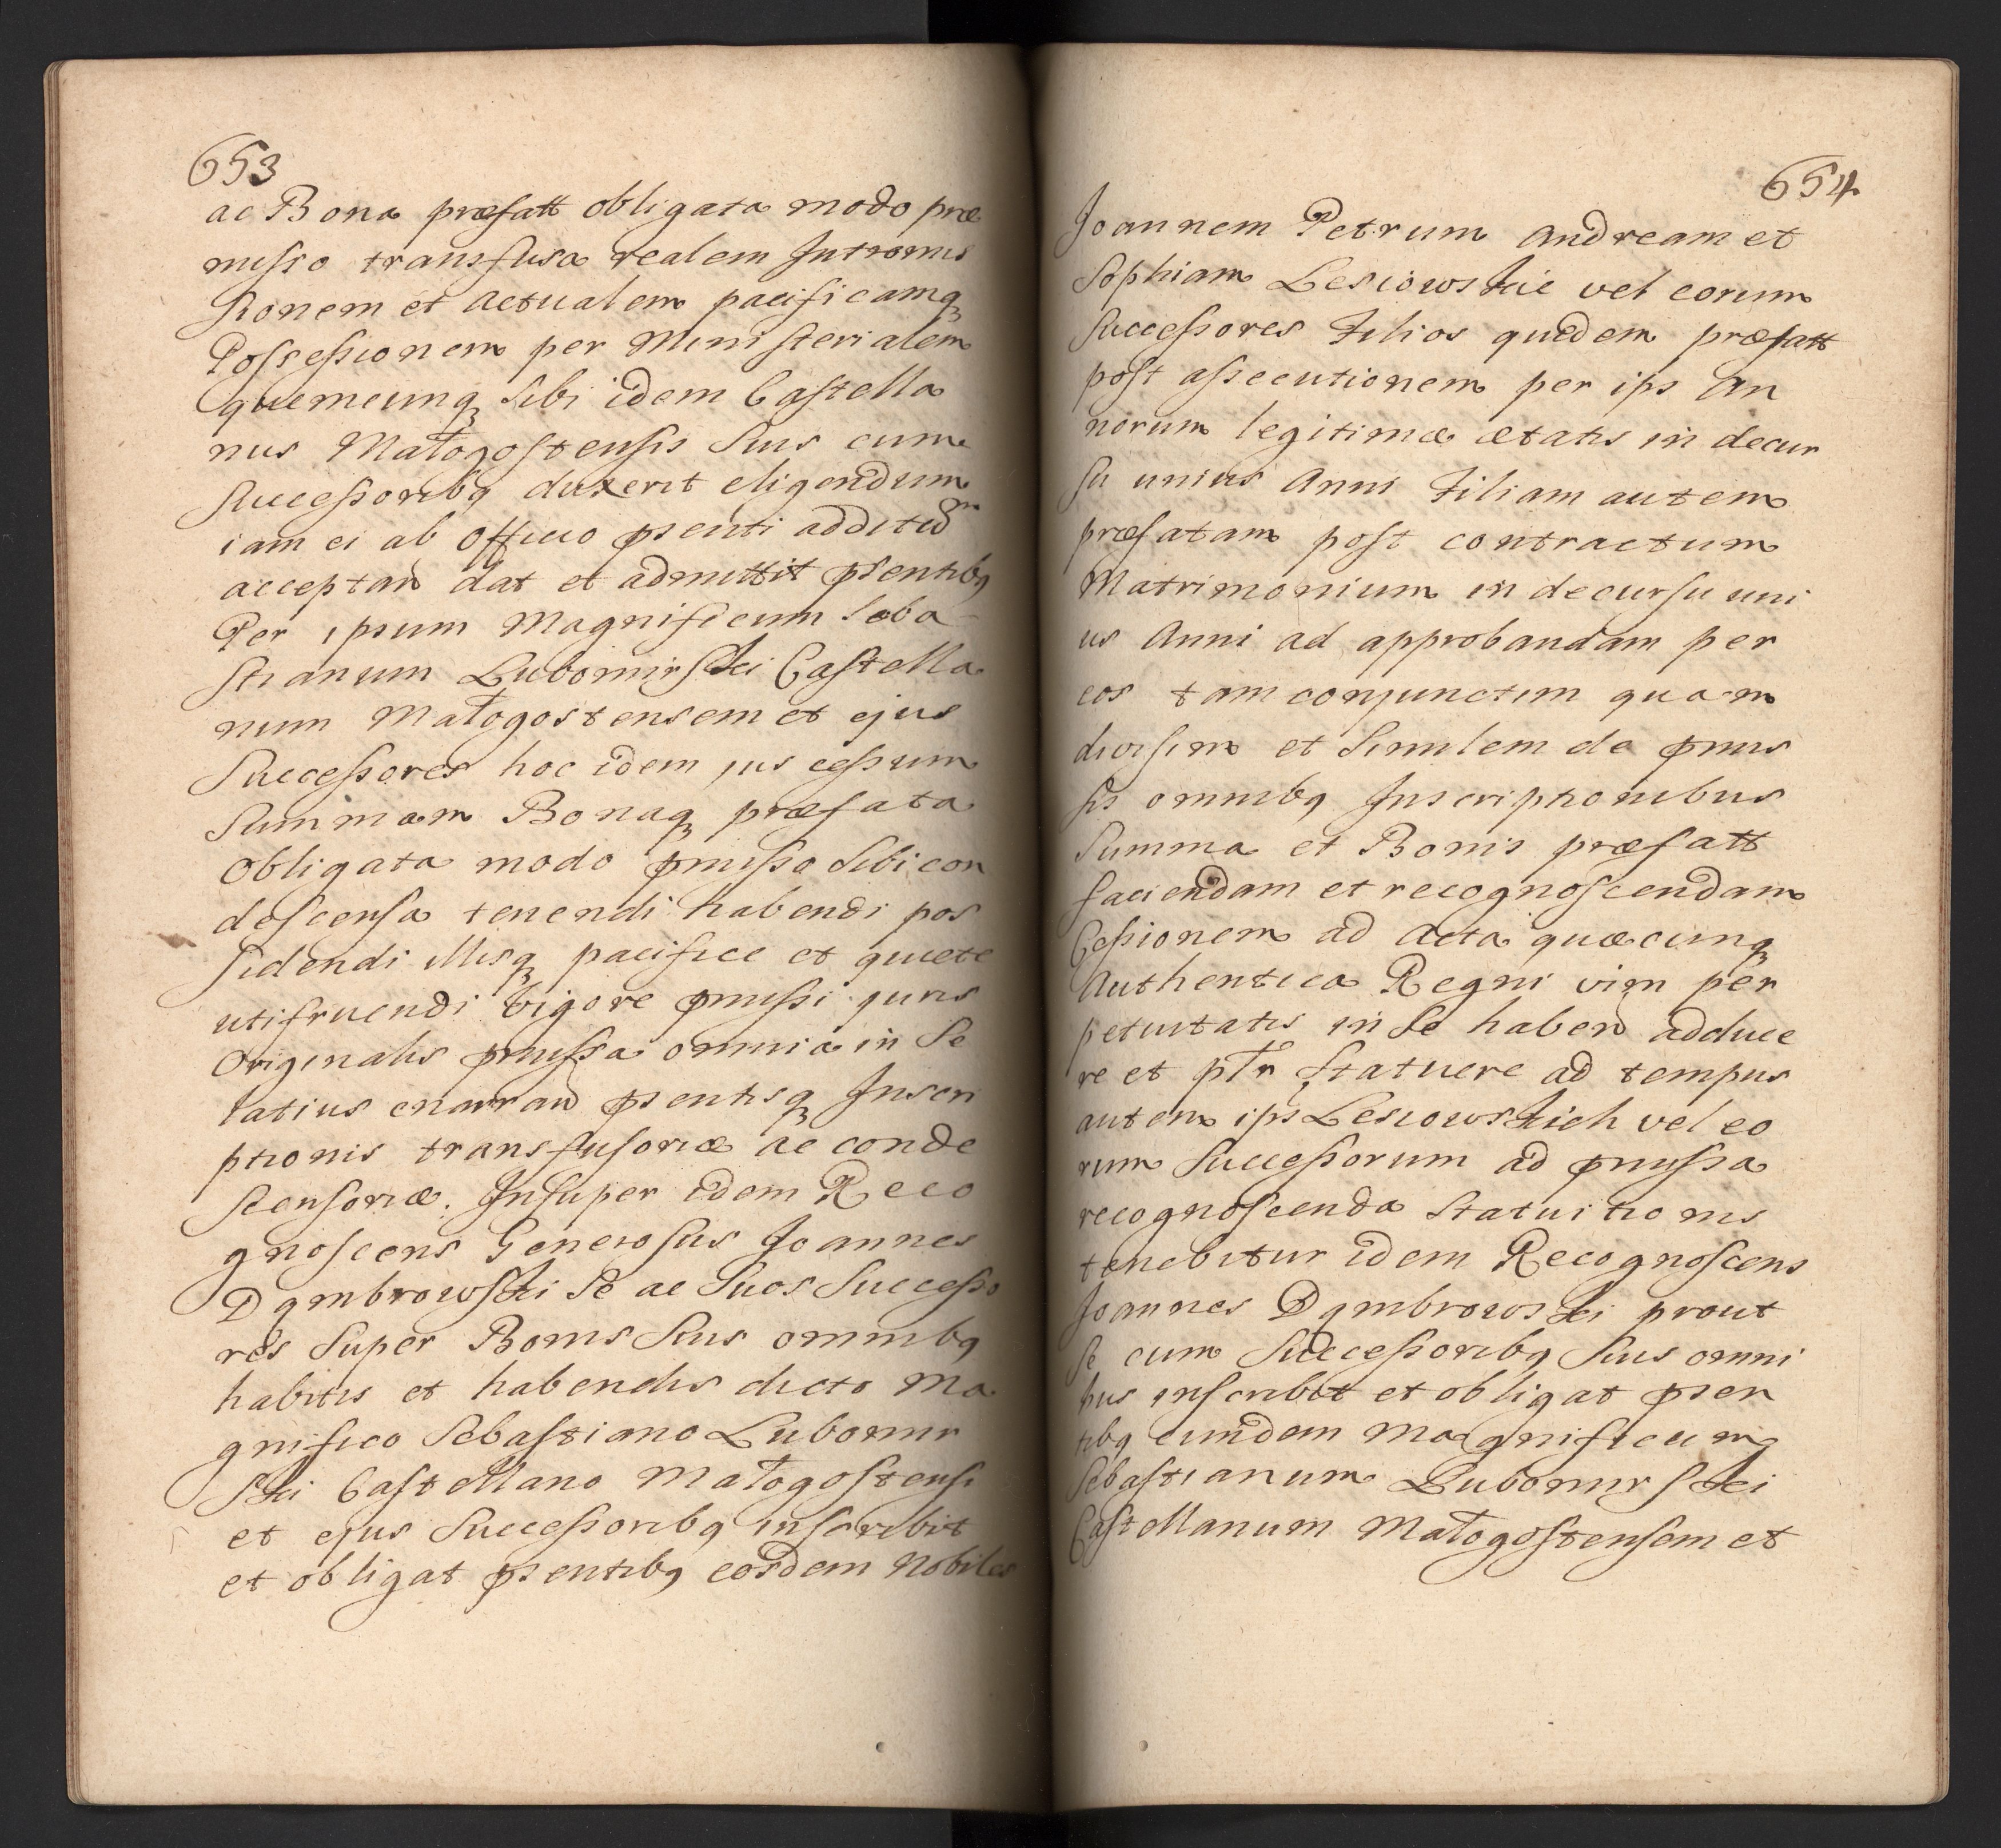 653
ac Bona præfatt obligata modo præ
misso transfusa realem Intromis
sionem et actualem pacificamq
Possessionem per Ministerialem
quemcunq sibi idem Castella
nus Małogostensis suis cum
Successoribq duxerit eligendum
iam ei ab Officio pnti additum
acceptan dat et admittit psentibq
Per ipsum Magnificum Seba
stianum Lubomirski Castella
num Małogostensem et ejus
Successores hoc idem jus cessum
Summam Bonaq præfata
obligata modo pmisso sibi con
descensa tenendi habendi pos
sidendi illisq pacifice et quiete
utifruendi vigore pmissi juris
Originalis pmissa omnia in se
latius enarran psentisq Inscri
ptionis transfusoriæ ac conde
scensoriæ. Insuper idem Reco
gnoscens Generosus Joannes
Dąmbrowski se ac suos Successo
res super Bonis suis omnibq
habitis et habendis dicto Ma
gnifico Sebastiano Lubomir
ski Castellano Małogostensi
et ejus Successoribq inscribit
et obligat psentibq eosdem Nobiles
654
Joannem Petrum Andream et
Sophiam Lesiowskie vel eorum
Successores Filios quidem præfatt
post assecutionem per ips an
norum legitimæ ætatis in decur
su unius Anni Filiam autem
præfatam post contractum
Matrimonium in decursu uni
us Anni ad approbandam per
eos tam conjunctim quam
divisim et similem de pmis
sis omnibq Inscriptionibus
Summa et Bonis præfatt
faciendam et recognoscendam
Cessionem ad Acta quæcunq
Authentica Regni vim per
petuitatis in se haben adduce
re et płr statuere ad tempus
autem ips Lesiowskich vel eo
rum Successorum ad pmissa
recognoscenda statuitionis
tenebitur idem Recognoscens
Joannes Dąmbrowski prout
se cum Successoribq suis omni
bus inscribit et obligat psen
tibq eundem Magnificum
Sebastianum Lubomirski
Castellanum Małogostensem et